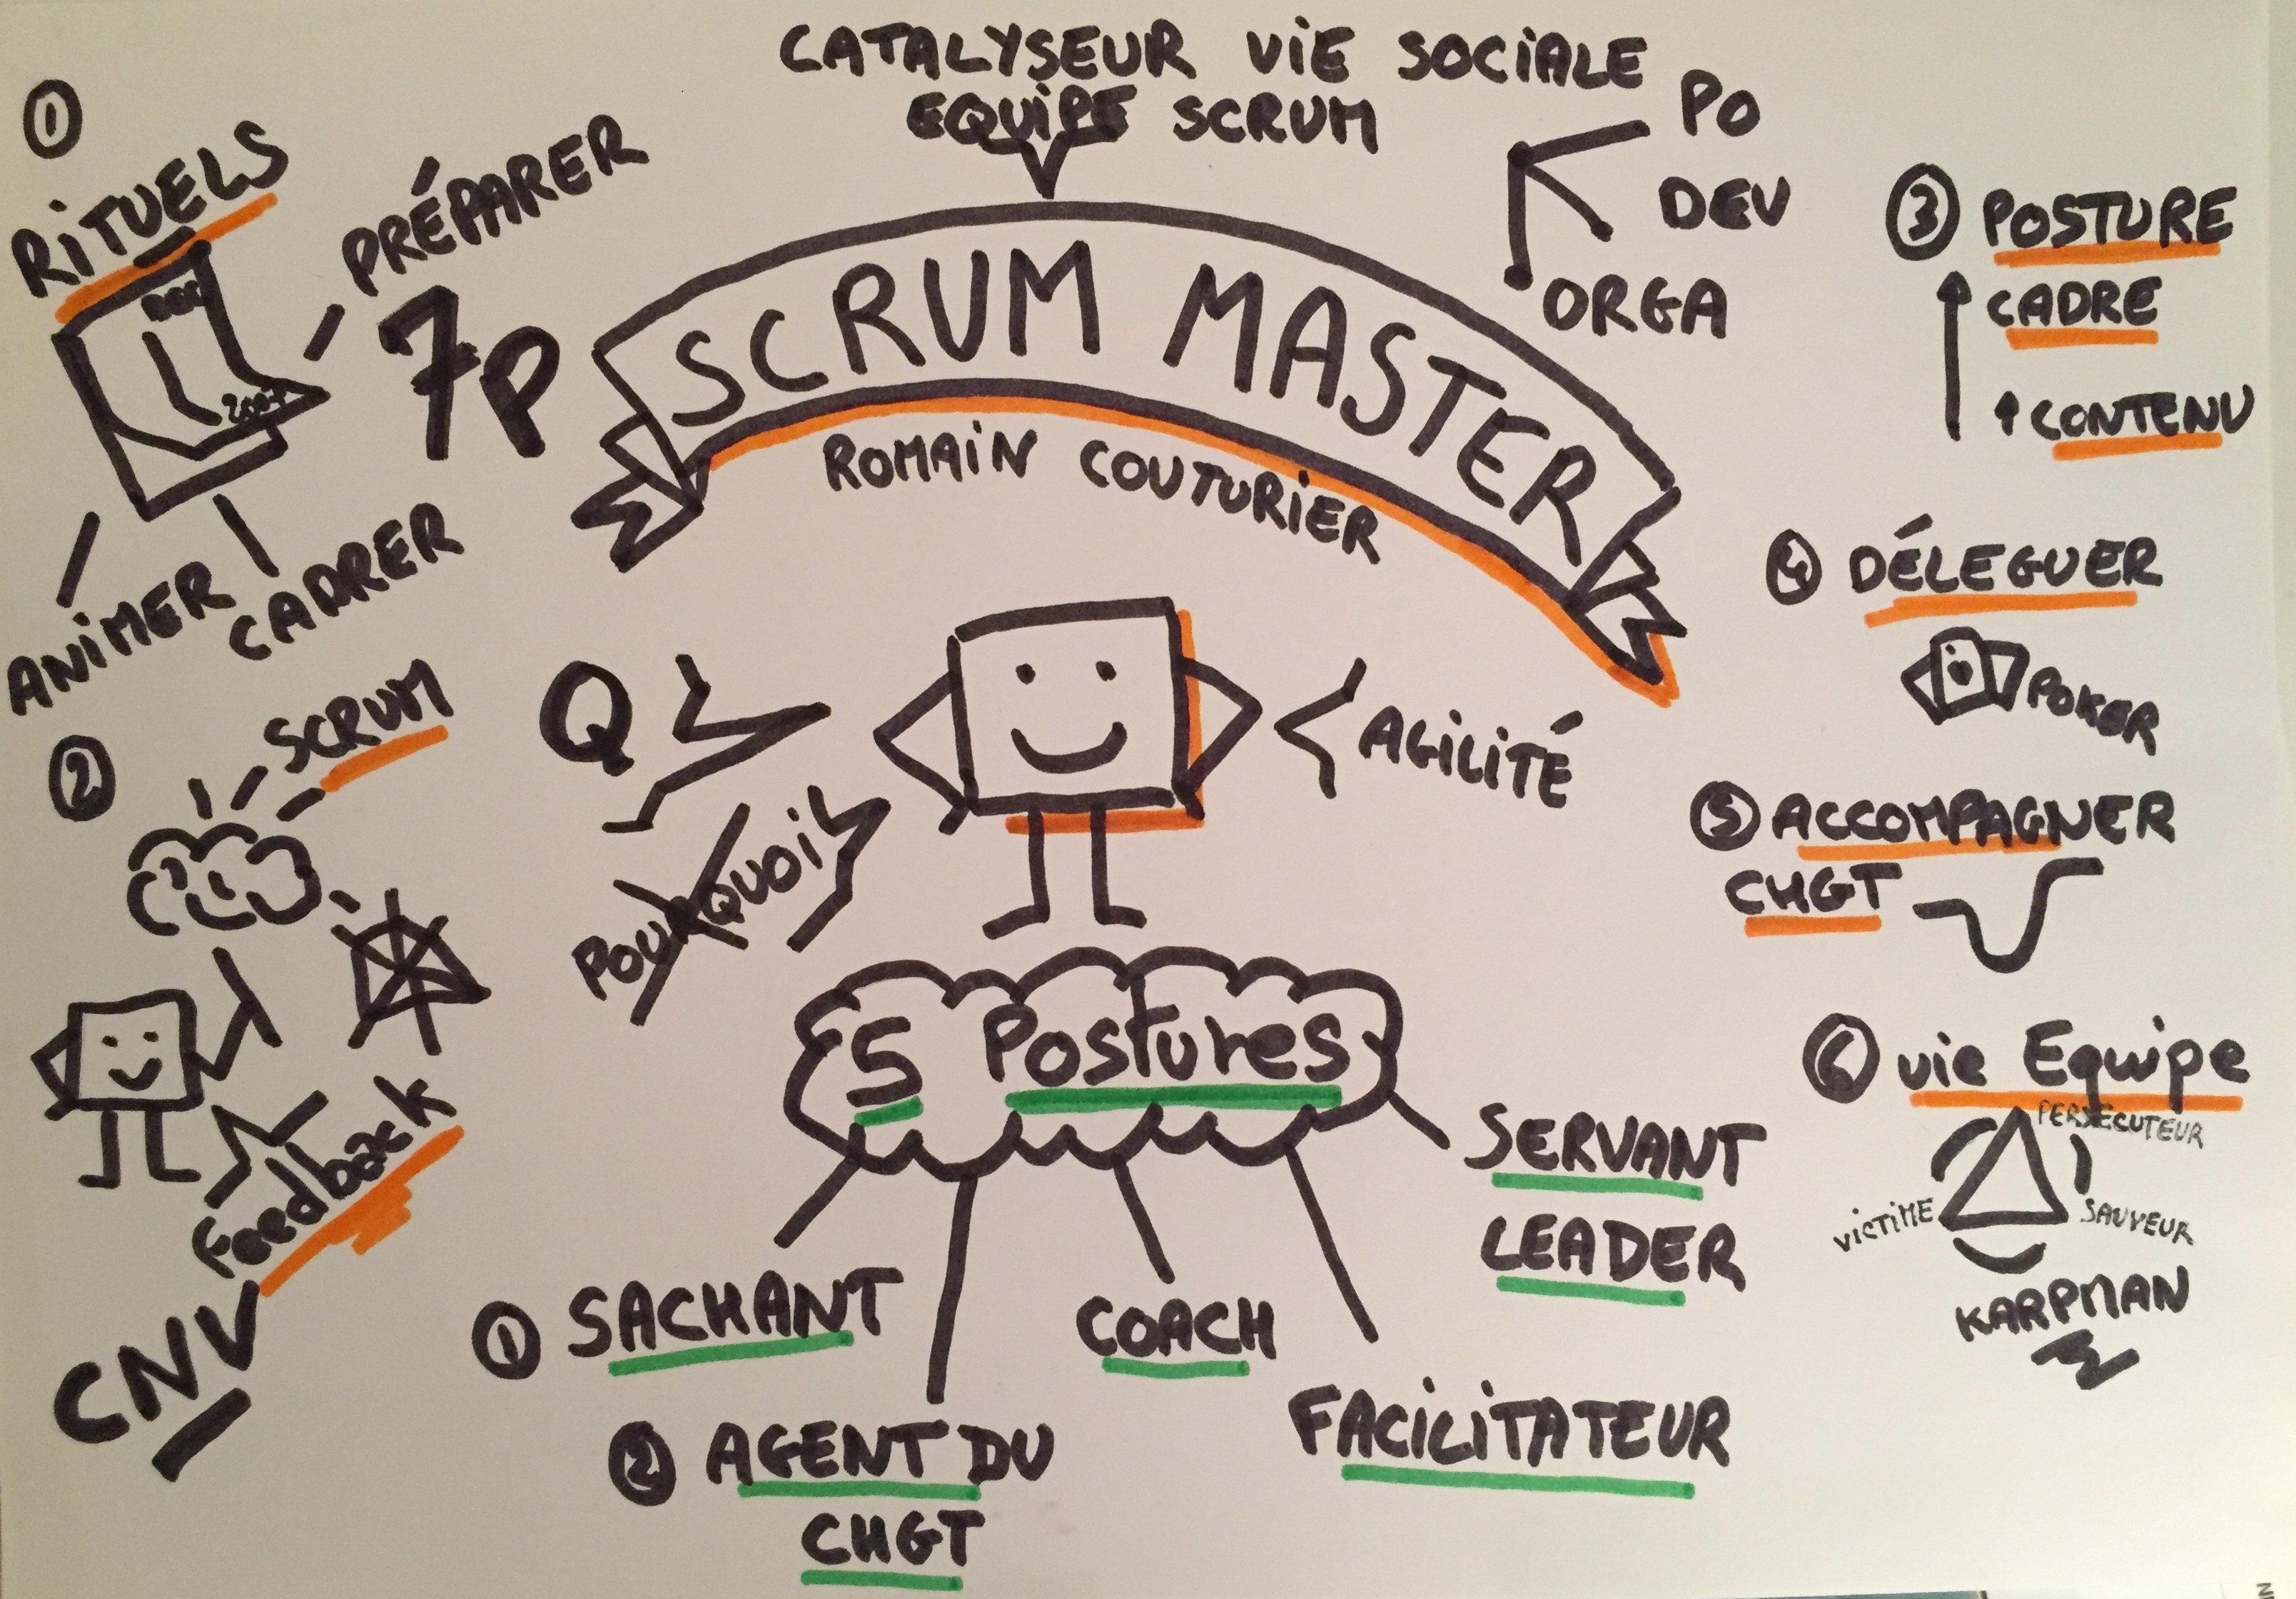 CATALYSEUR VIE SOCIALE
EQUIPE SCRUM
PO
DEV
ORGA
SCRUM MASTER
ROMAIN COUTURIER
①
RITUELS
PRÉPARER
7P
ANIMER
CADRER
②
SCRUM
Feedback
CNV
Q
POURQUOI
AGILITÉ
5 Postures
① SACHANT
② AGENT DU
CHGT
COACH
FACILITATEUR
SERVANT
LEADER
③ POSTURE
CADRE
CONTENU
④ DÉLEGUER
POKER
⑤ ACCOMPAGNER
CHGT
⑥ vie Equipe
PERSECUTEUR
VICTIME
SAUVEUR
KARPMAN